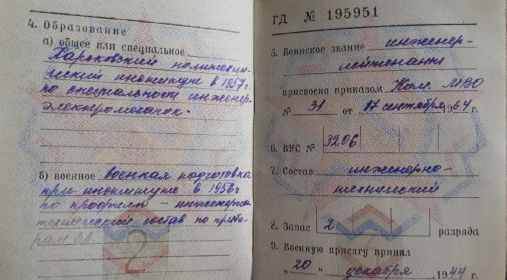 4. Образование
а) общее или специальное
Харьковский политехни-
ческий институт в 1957г.
по специальности инженер-
электромеханик.
б) военное военная подготовка
при институте в 1956г
по профилю - инженерно
технический состав по прибо-
рам
2
ГД № 195951
5. Воинское звание инженер-
лейтенант
присвоено приказом Ком. МВО
№ 31 от „17 сентября 1964 г.
6. ВУС № 3206
7. Состав инженерно-
технический
8. Запас 2 разряда
9. Военную присягу принял
„20 „ декабря 1944 г.